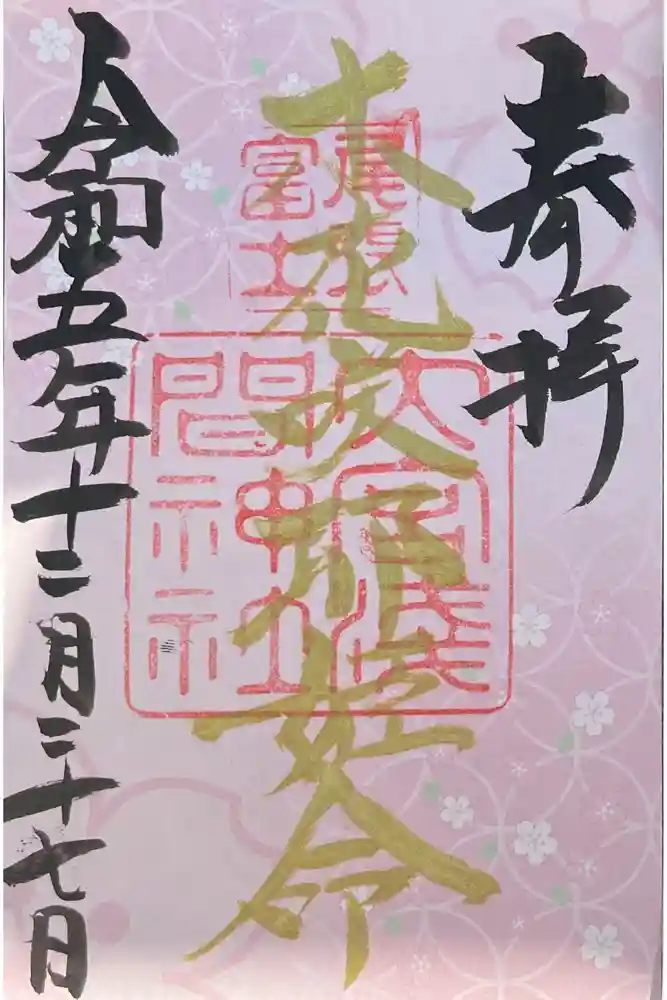 奉拝
尾張
富士
木花咲耶姫命
大宮浅
間神社
令和五年十二月二十七日